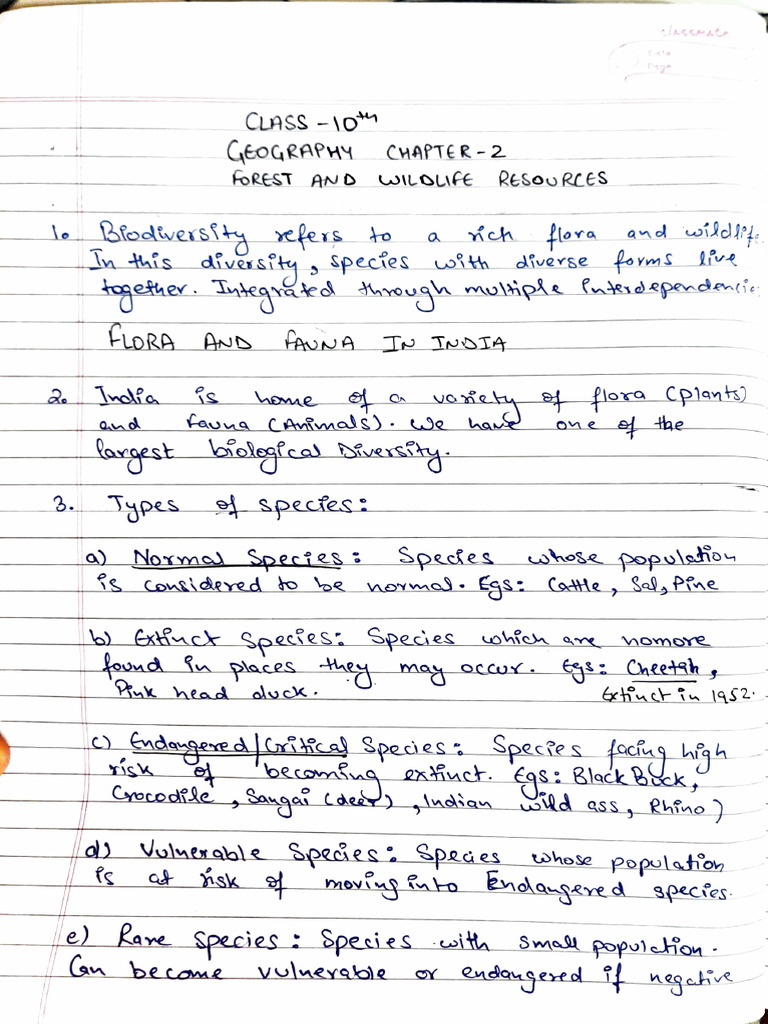 classmate
Date
Page
CLASS -10th
GEOGRAPHY CHAPTER-2
FOREST AND WILDLIFE RESOURCES
1. Biodiversity refers to a rich flora and wildlife.
In this diversity, species with diverse forms live
together. Integrated through multiple interdependencie
FLORA AND FAUNA IN INDIA
2. India is home of a variety of flora (plants)
and fauna (Animals). We have one of the
largest biological Diversity.
3. Types of species:
a) Normal Species: Species whose population
is considered to be normal. Egs: Cattle, Sal, Pine
b) Extinct Species: Species which are nomore
found in places they may occur. Egs: Cheetah,
Pink head duck. Extinct in 1952.
c) Endangered/Critical Species: Species facing high
risk of becoming extinct. Egs: Black Buck,
Crocodile, Sangai (deer), Indian wild ass, Rhino)
d) Vulnerable Species: Species whose population
is at risk of moving into Endangered species.
e) Rare Species: Species with small population.
Can become vulnerable or endangered if negative